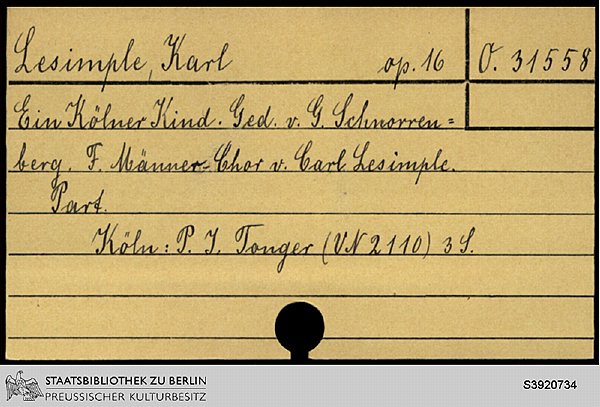 Lesimple, Karl op. 16 O. 31558
Ein Kölner Kind. Ged. v. G. Schnorren=
berg. F. Männer-Chor v. Carl Lesimple.
Part.
Köln: P. J. Tonger (VN 2110) 3 S.
STAATSBIBLIOTHEK ZU BERLIN
PREUSSISCHER KULTURBESITZ
S3920734